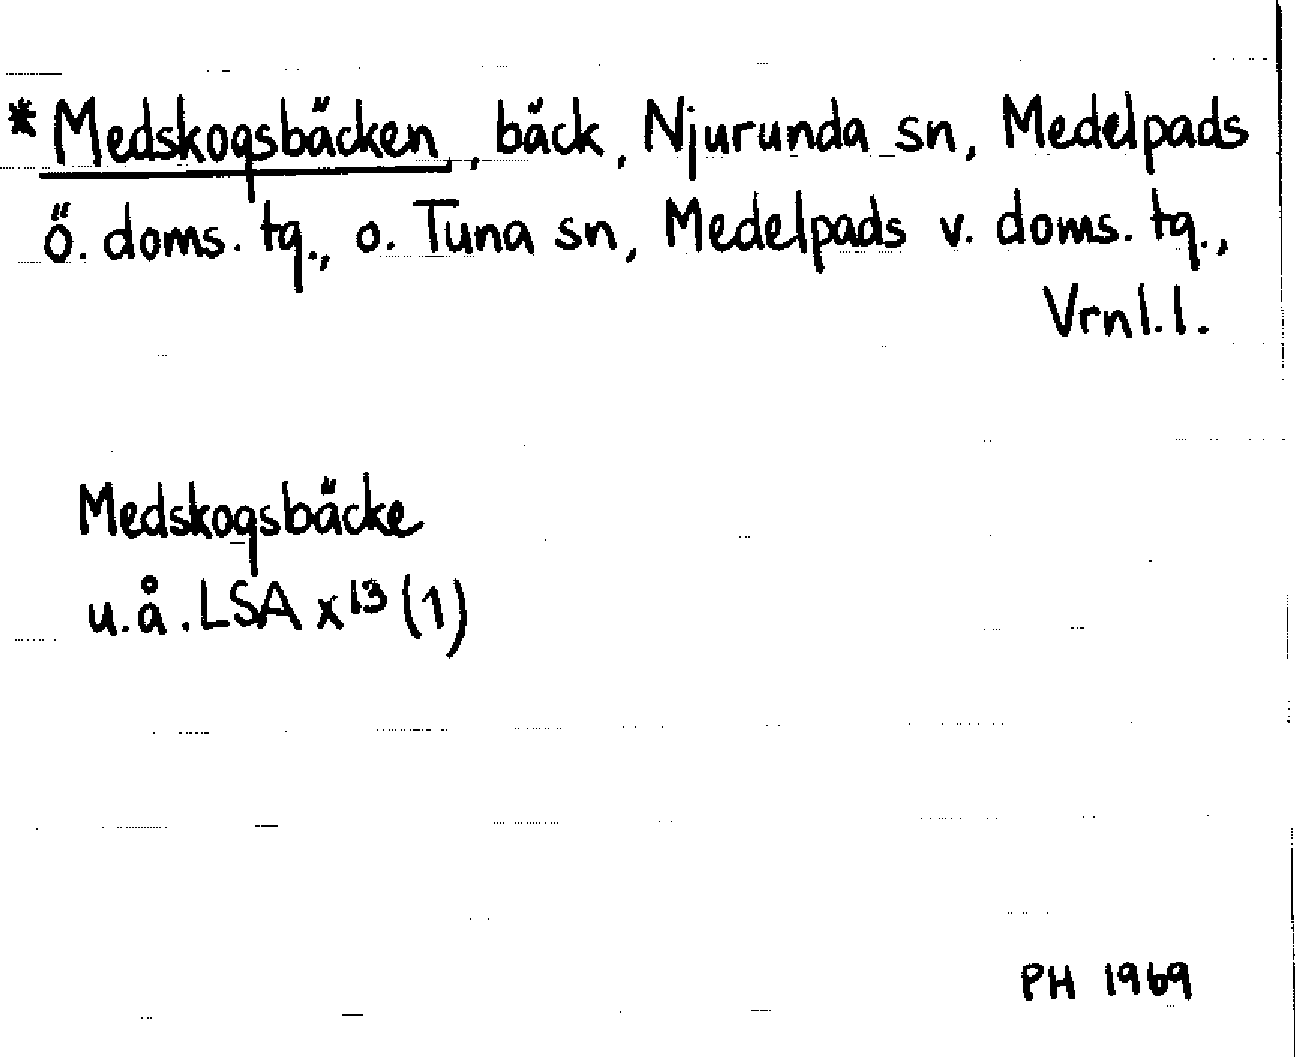 *Medskogsbäcken, bäck, Njurunda sn, Medelpads
ö. doms. tg., o. Tuna sn, Medelpads v. doms. tg.,
Vrnl. l.
Medskogsbäcke
u.å. LSA x¹³ (1)
PH 1969